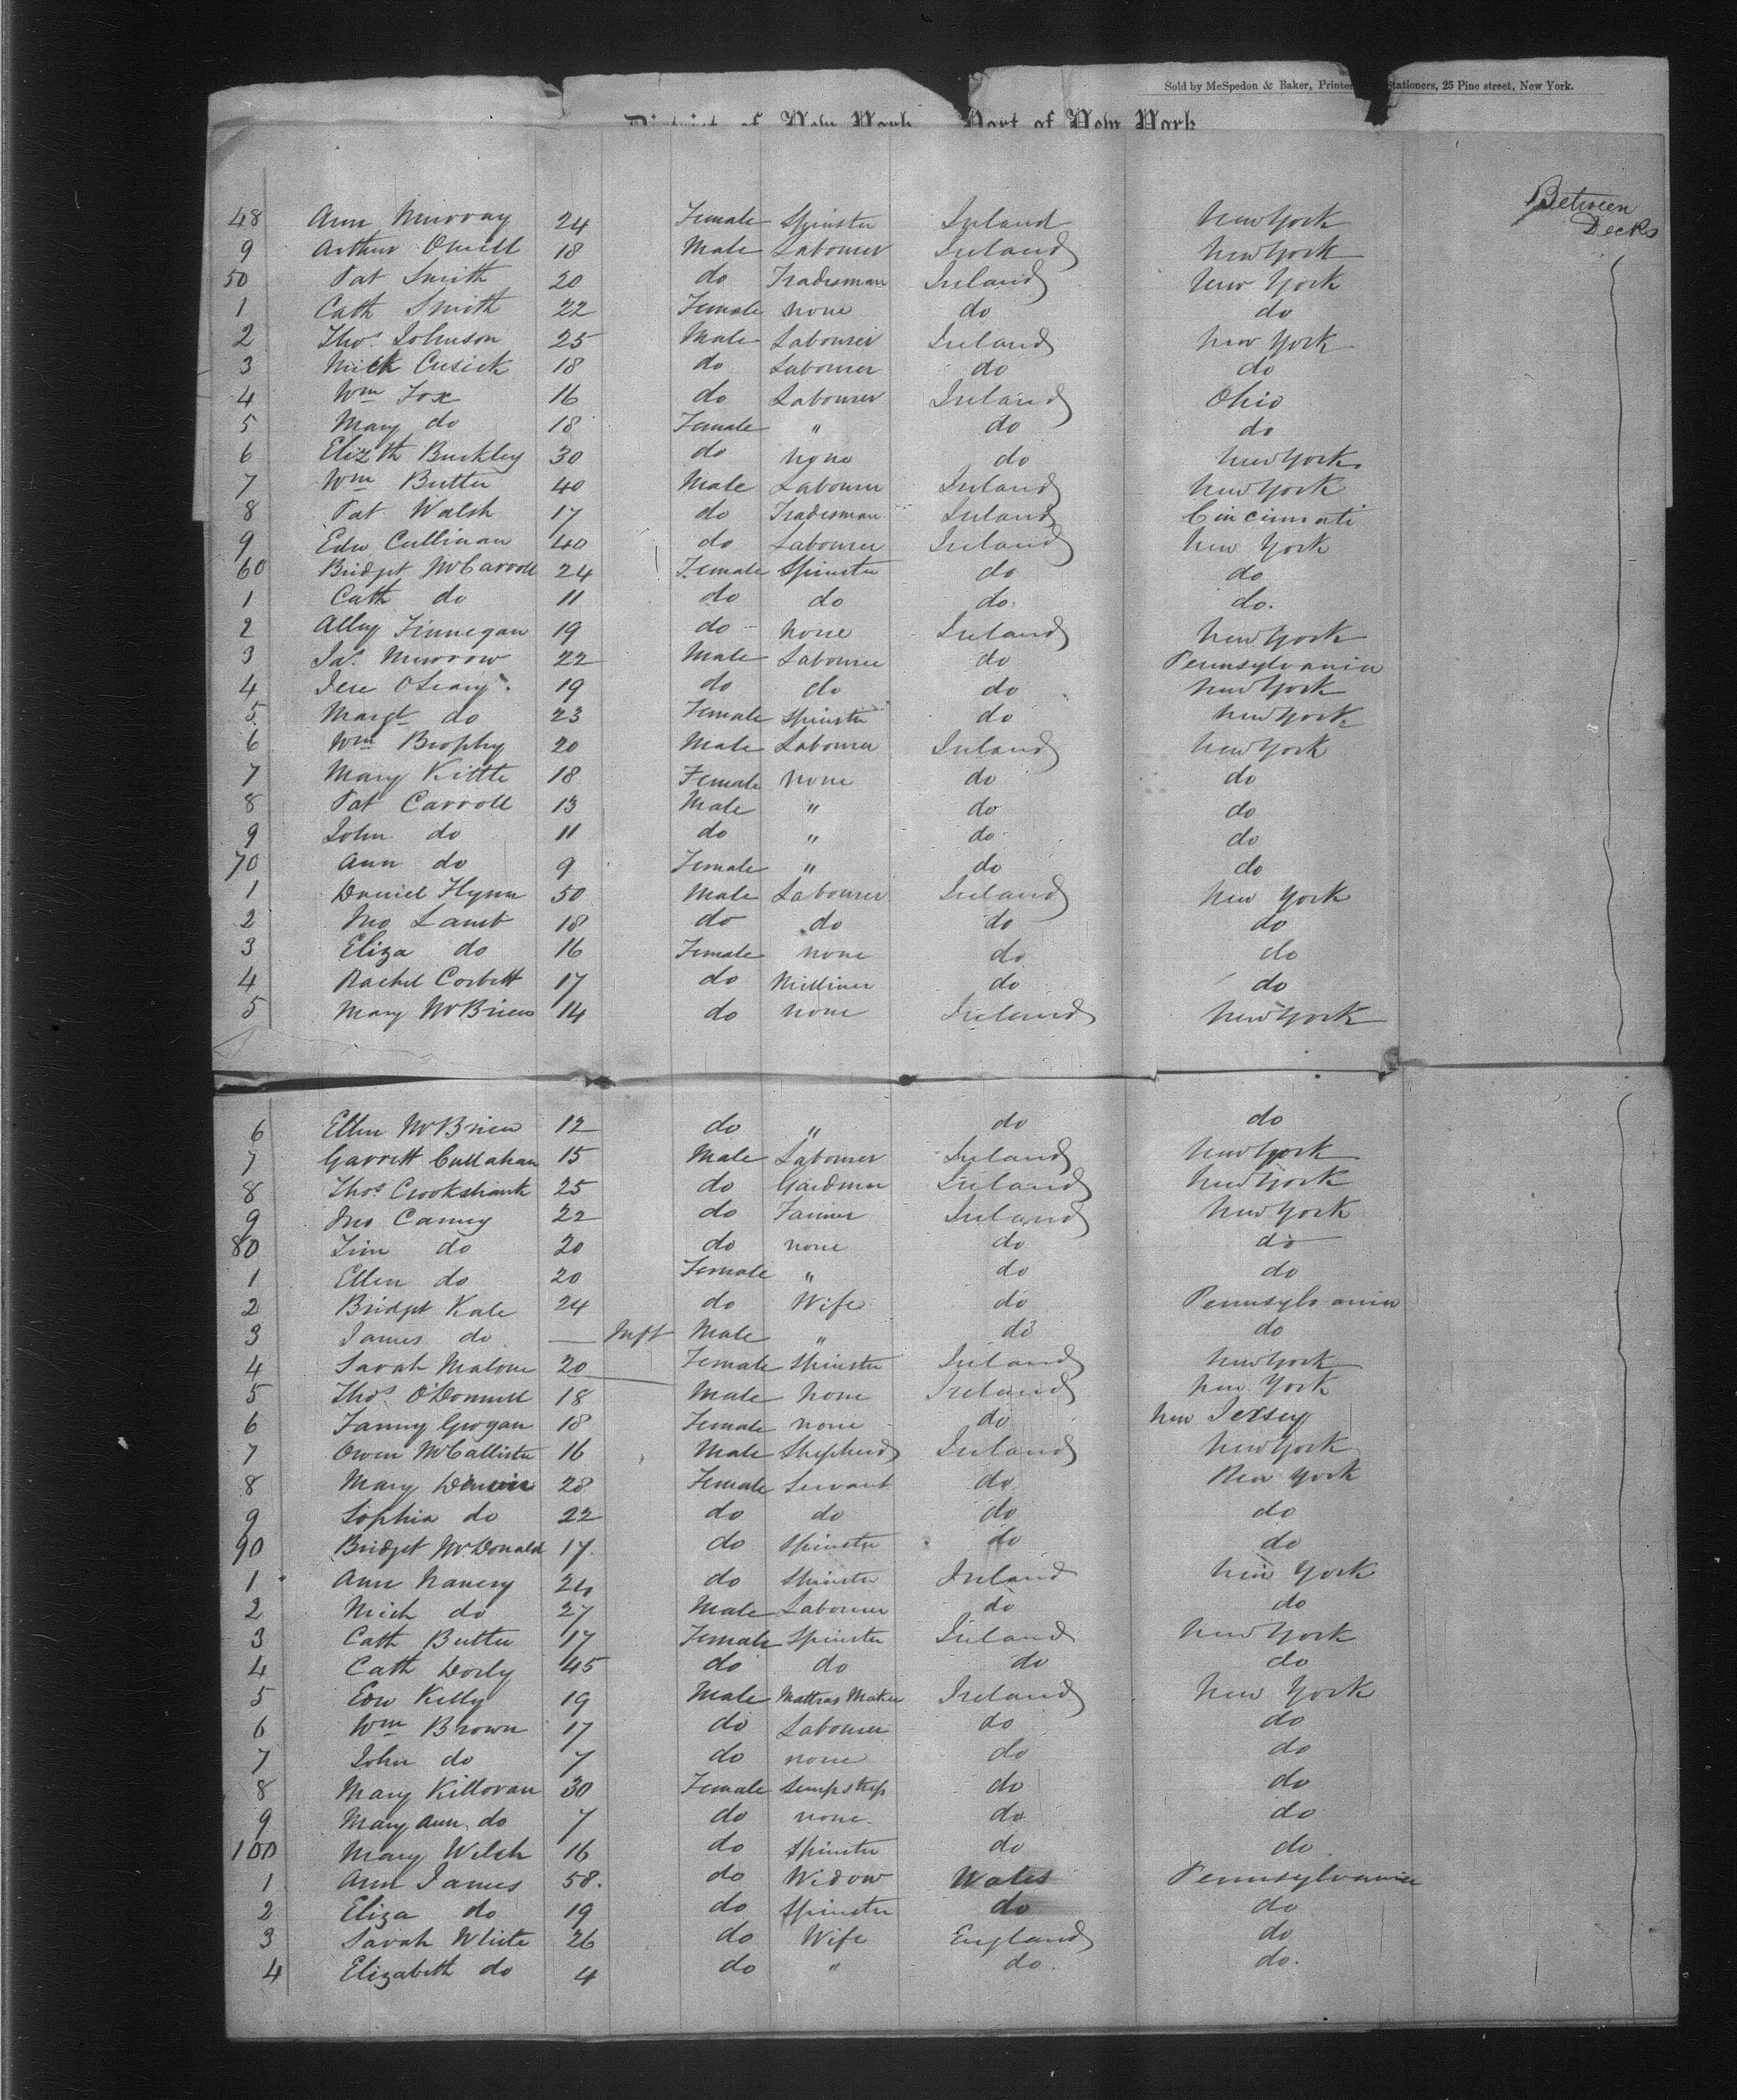 Sold by McSpedon & Baker, Printer Stationers, 25 Pine street, New York.
District of New York Port of New York
Between
Decks
48 Ann Murray 24 Female Spinster Ireland New York
9 Arthur Oneill 18 Male Labourer Ireland New York
50 Pat Smith 20 do Tradesman Ireland New York
1 Cath Smith 22 Female none do do
2 Thos. Johnson 25 Male Labourer Ireland New York
3 Mick Cusick 18 do Labourer do do
4 Wm Fox 16 do Labourer Ireland Ohio
5 Mary do 18 Female " do do
6 Elizth Buckley 30 do none do New York
7 Wm Butler 40 Male Labourer Ireland New York
8 Pat Walsh 17 do Tradesman Ireland Cincinnati
9 Edw Cullinan 40 do Labourer Ireland New York
60 Bridget McCarroll 24 Female Spinster do do
1 Cath do 11 do do do. do.
2 Alley Finnegan 19 do none Ireland New York
3 Jas. Murrow 22 Male Labourer do Pennsylvania
4 Jere OLeary 19 do do do New York
5 Margt do 23 Female Spinster do New York
6 Wm Brophy 20 Male Labourer Ireland New York
7 Mary Kittle 18 Female none do do
8 Pat Carroll 13 Male " do do
9 John do 11 do " do do
70 Ann do 9 Female " do do
1 Daniel Flynn 50 Male Labourer Ireland New York
2 Jno Lamb 18 do do do do
3 Eliza do 16 Female none do do
4 Rachel Corbett 17 do Milliner do do
5 Mary McBrien 14 do none Ireland New York
6 Ellen McBrien 12 do " do do
7 Garrett Cullahan 15 Male Labourer Ireland New York
8 Thos Crookshank 25 do Gardener Ireland New York
9 Jno Canny 22 do Farmer Ireland New York
80 Tim do 20 do none do do
1 Ellen do 20 Female " do do
2 Bridget Kale 24 do Wife do Pennsylvania
3 James do — Inft Male " do do
4 Sarah Malone 20 Female Spinster Ireland New York
5 Thos. O'Donnell 18 Male none Ireland New York
6 Fanny Grogan 18 Female none do New Jersey
7 Owen McCallister 16 Male Shepherd Ireland New York
8 Mary 28 Female Servant do New York
9 Sophia do 22 do do do do
90 Bridget McDonald 17. do Spinster do do
1 Ann Nancry 24 do Spinster Ireland New York
2 Mich do 27 Male Labourer do do
3 Cath Butler 17 Female Spinster Ireland New York
4 Cath Dorly 45 do do do do
5 Edw Kelly 19 Male Mattras Maker Ireland New York
6 Wm Brown 17 do Labourer do do
7 John do 7 do none do do
8 Mary Killoran 30 Female Sempstress do do
9 Mary Ann do 7 do none. do do
100 Mary Welsh 16 do Spinster do do
1 Ann James 58. do Widow Wales Pennsylvania
2 Eliza do 19 do Spinster do do
3 Sarah White 26 do Wife England do
4 Elizabeth do 4 do " do. do.